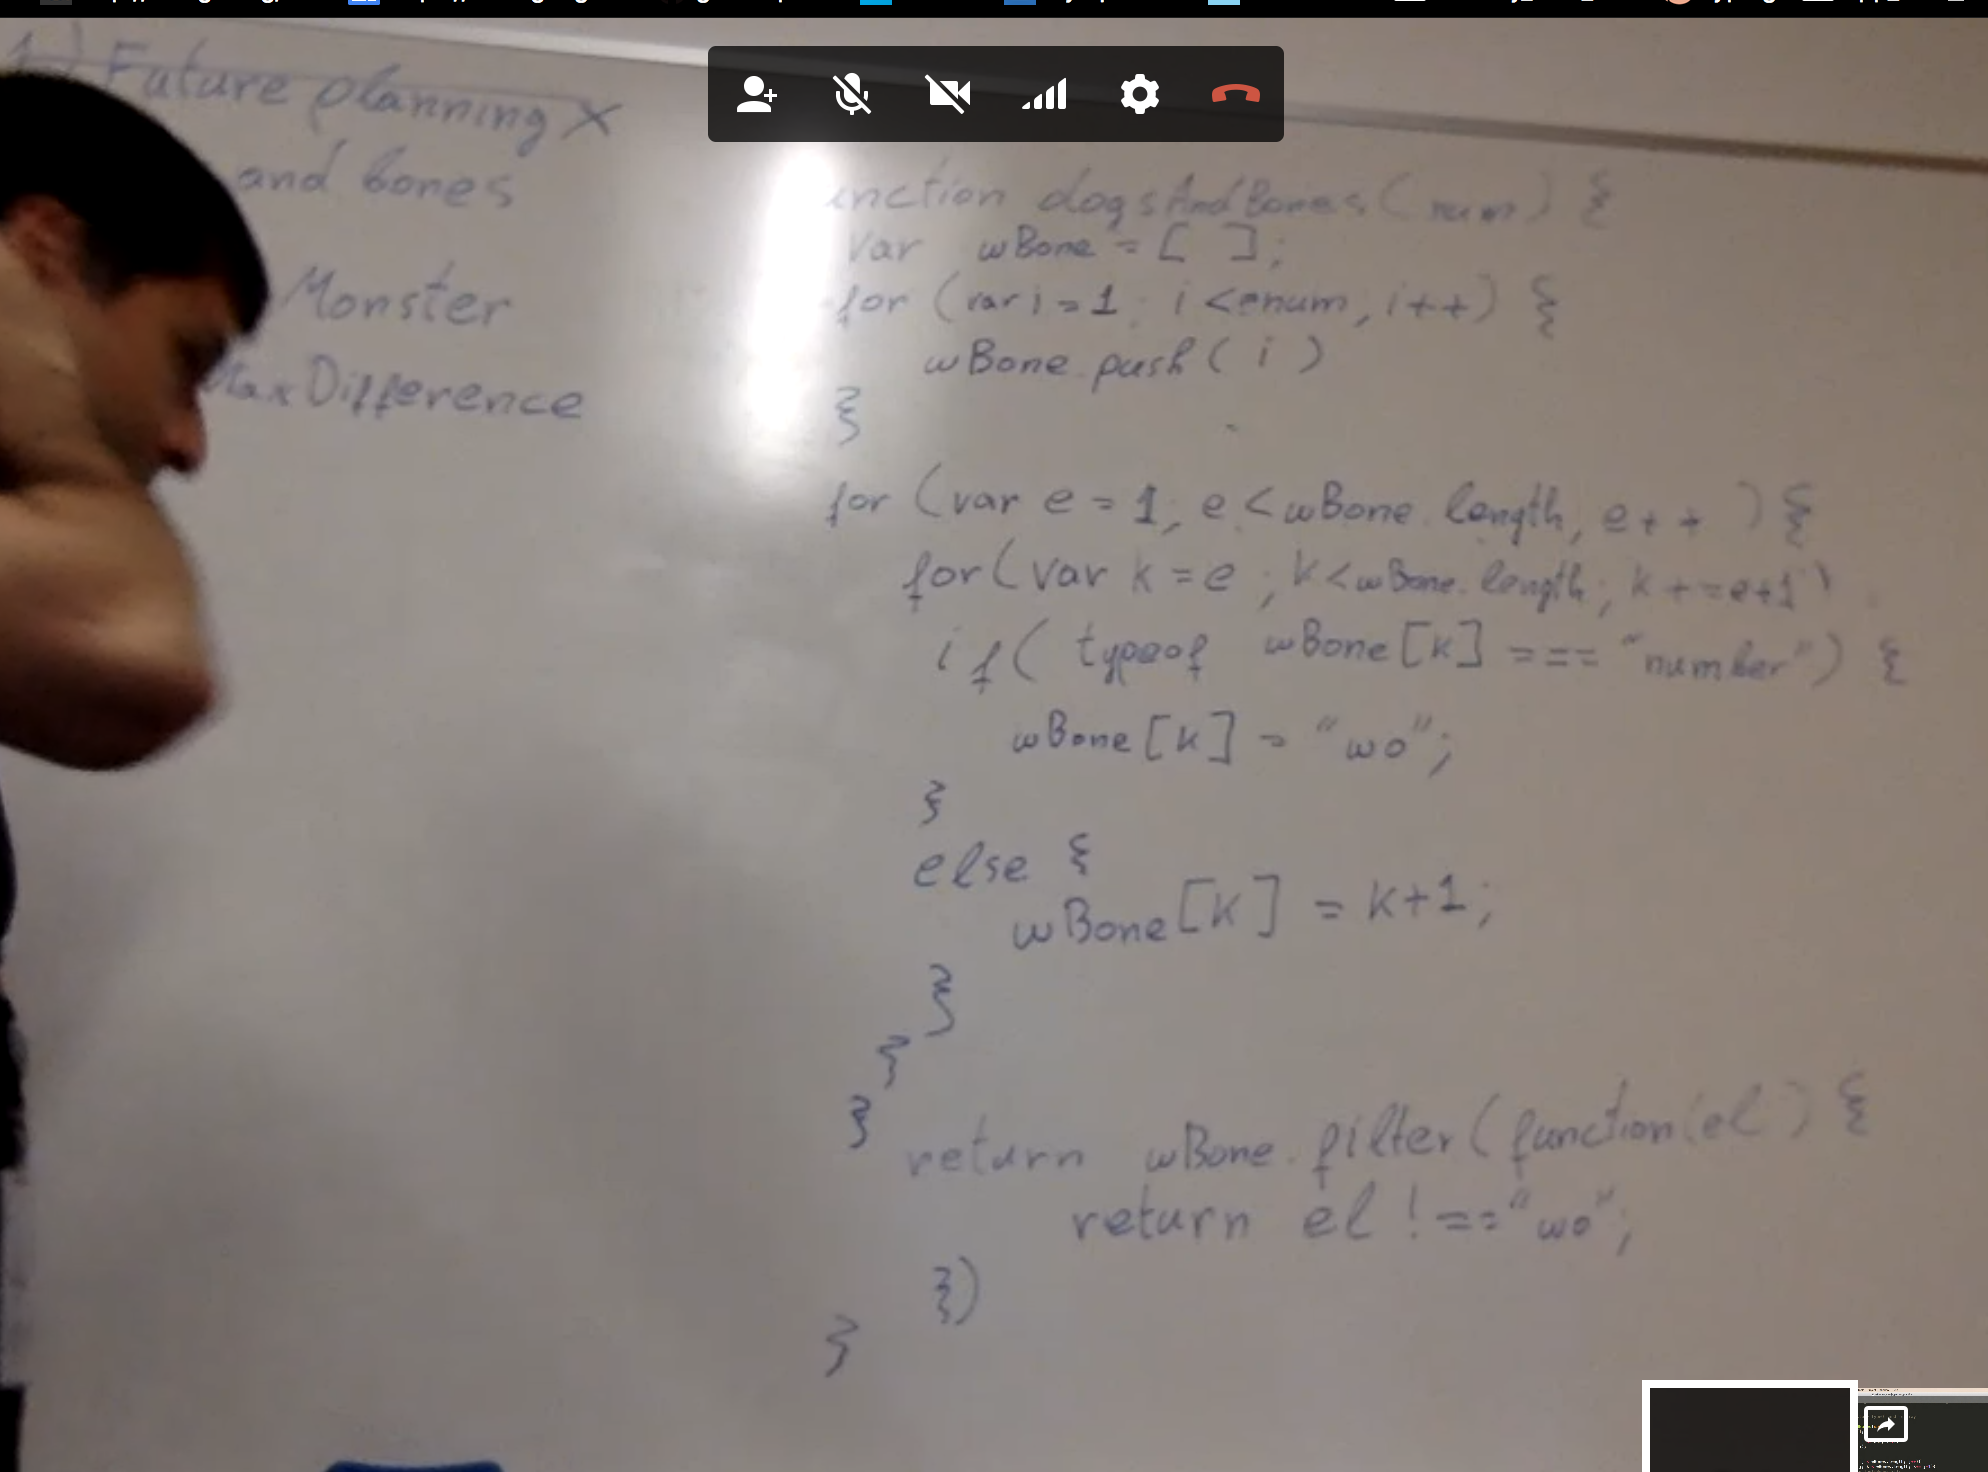 1.) Future planning X
and bones
Monster
Max Difference
unction dogsAndBones(num) {
var wBone = [ ];
for (var i = 1; i <= num, i++) {
wBone.push( i )
}
for (var e = 1; e < wBone.length, e++ ) {
for(var k = e ; k < wBone.length; k += e+1)
if( typeof wBone[k] === "number") {
wBone[k] = "wo";
}
else {
wBone[k] = k+1;
}
}
}
return wBone.filter(function(el) {
return el !== "wo";
})
}